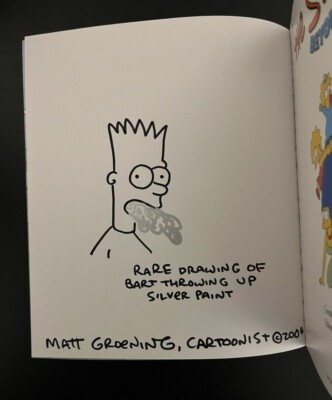 RARE DRAWING OF
BART THROWING UP
SILVER PAINT
MATT GROENING, CARTOONIST ©2004